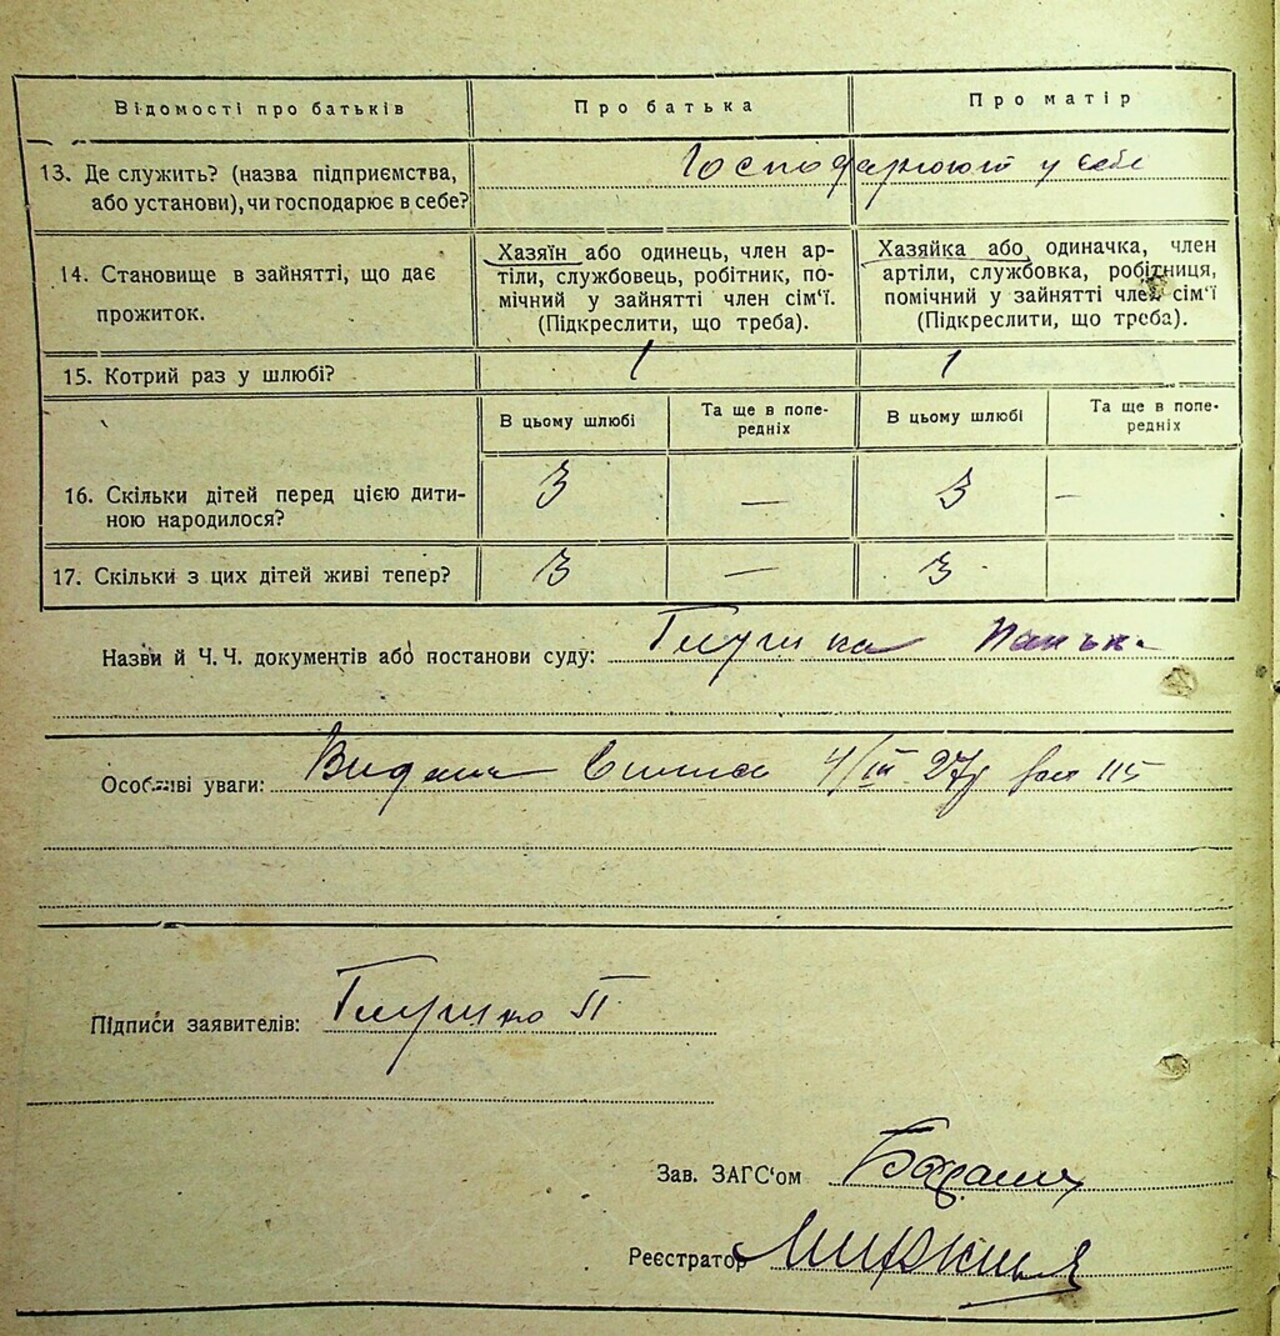 Відомості про батьків
Про батька
Про матір
13. Де служить? (назва підприємства,
або установи), чи господарює в себе?
Господарюют у себе
14. Становище в зайнятті, що дає
прожиток.
Хазяїн або одинець, член ар-
тіли, службовець, робітник, по-
мічний у зайнятті член сім'ї.
(Підкреслити, що треба).
Хазяйка або одиначка, член
артіли, службовка, робітниця,
помічний у зайнятті член сім'ї
(Підкреслити, що треба).
15. Котрий раз у шлюбі?
1
1
В цьому шлюбі
Та ще в попе-
редніх
В цьому шлюбі
Та ще в попе-
редніх
16. Скільки дітей перед цією дити-
ною народилося?
3
—
3
—
17. Скільки з цих дітей живі тепер?
3
—
3
Назви й Ч. Ч. документів або постанови суду:
Особливі уваги: 4/III 27р 115
Підписи заявителів: П
Зав. ЗАГС'ом
Реєстратор